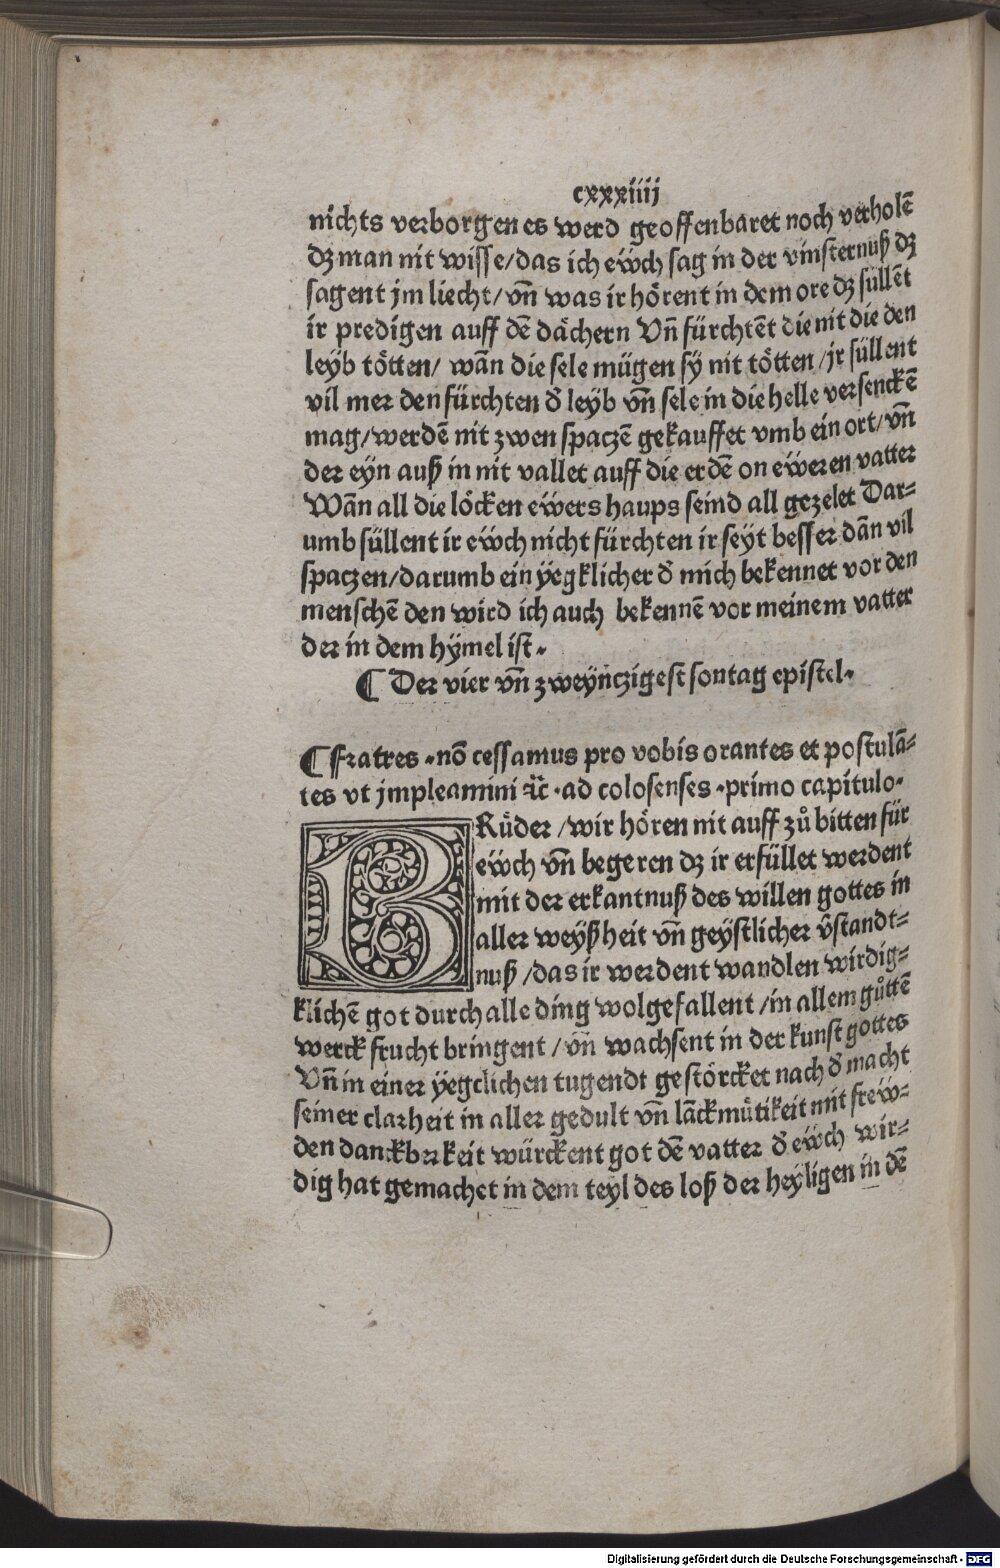 cxxxiiij
nichts verborgen es werd geoffenbaret noch verholē
dʒ man nit wisse/das ich eẅch sag in der vinsternuß dʒ
sagent jm liecht/vn̄ was ir hörent in dem ore dʒ süllēt
ir predigen auff dē dächern Vn̄ fürchtēt die nit die den
leyb tötten/ wān die sele mügen sÿ nit tötten/jr süllent
vil mer den fürchten đ leyb vn̄ sele in die helle versenckē
mag/werdē nit zwen spaczē gekauffet vmb ein ort/vn̄
der eyn auß in nit vallet auff die erdē on eẅeren vatter
Wān all die löcken eẅers haups seind all gezelet Dar⸗
umb süllent ir eẅch nicht fürchten ir seyt besser dān vil
spaczen/darumb ein ÿegklicher đ mich bekennet vor den
menschē den wird ich auch bekennē vor meinem vatter
der in dem hÿmel ist.
¶ Der vier vn̄ zweÿnczigest sontag epistel.
¶ fratres .nō cessamus pro vobis orantes et postulā⸗
tes vt jmpleamini ⁊c̄ .ad colosenses .primo capitulo.
BRüder /wir hören nit auff zů bitten für
eẅch vn̄ begeren dʒ ir erfüllet werdent
mit der erkantnuß des willen gottes in
aller weyßheit vn̄ geÿstlicher v̄standt⸗
nuß /das ir werdent wandlen wirdig⸗
klichē got durch alle ding wolgefallent /in allem gůttē
werck frucht bringent /vn̄ wachsent in der kunst gottes
Vn̄ in einer ÿegclichen tugendt gestörcket nach đ macht
seiner clarheit in aller gedult vn̄ lāckmütikeit mit freẅ⸗
den danckbrkeit würckent got dē vatter đ eẅch wir⸗
dig hat gemachet in dem teyl des loß der heÿligen in dē
Digitalisierung gefördert durch die Deutsche Forschungsgemeinschaft - DFG